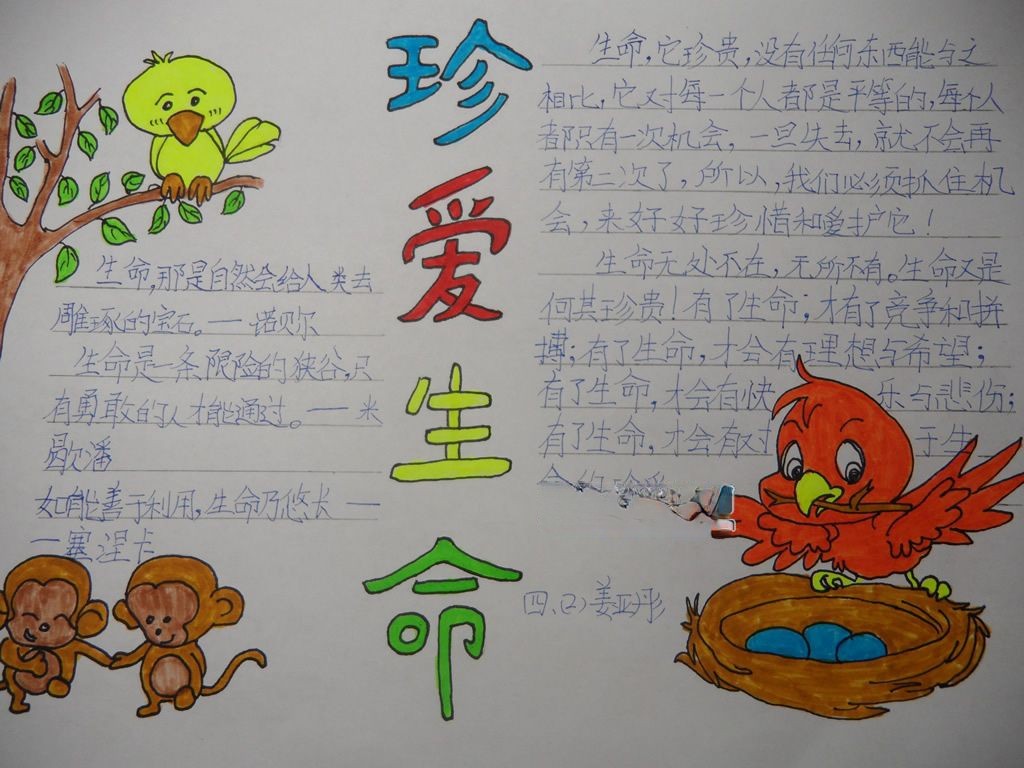 珍爱生命
生命,那是自然会给人类去
雕琢的宝石。一诺贝尔
生命是一条限险的狭谷,只
有勇敢的人才能通过。一米
歇潘
如能善于利用,生命乃悠长一
一塞涅卡
生命,它珍贵,没有任何东西能与之
相比,它对每一个人都是平等的,每个人
都只有一次机会,一旦失去,就不会再
有第二次了,所以,我们必须抓住机
会,来好好珍惜和爱护它!
生命无处不在,无所不有。生命又是
何其珍贵!有了生命;才有了竞争和拼
搏;有了生命,才会有理想与希望;
有了生命,才会有快乐与悲伤;
有了生命,才会有对于生
四、(2)姜亚彤